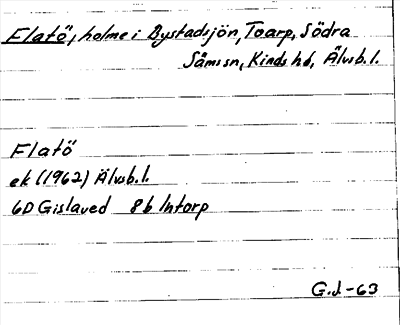 Flatö, holme i Bystadsjön, Toarp, Södra
Såms sn, Kinds hd, Älvsb. l.
Flatö
ek (1962) Älvsb. l.
6D Gislaved 8b Intorp
G.J.-63